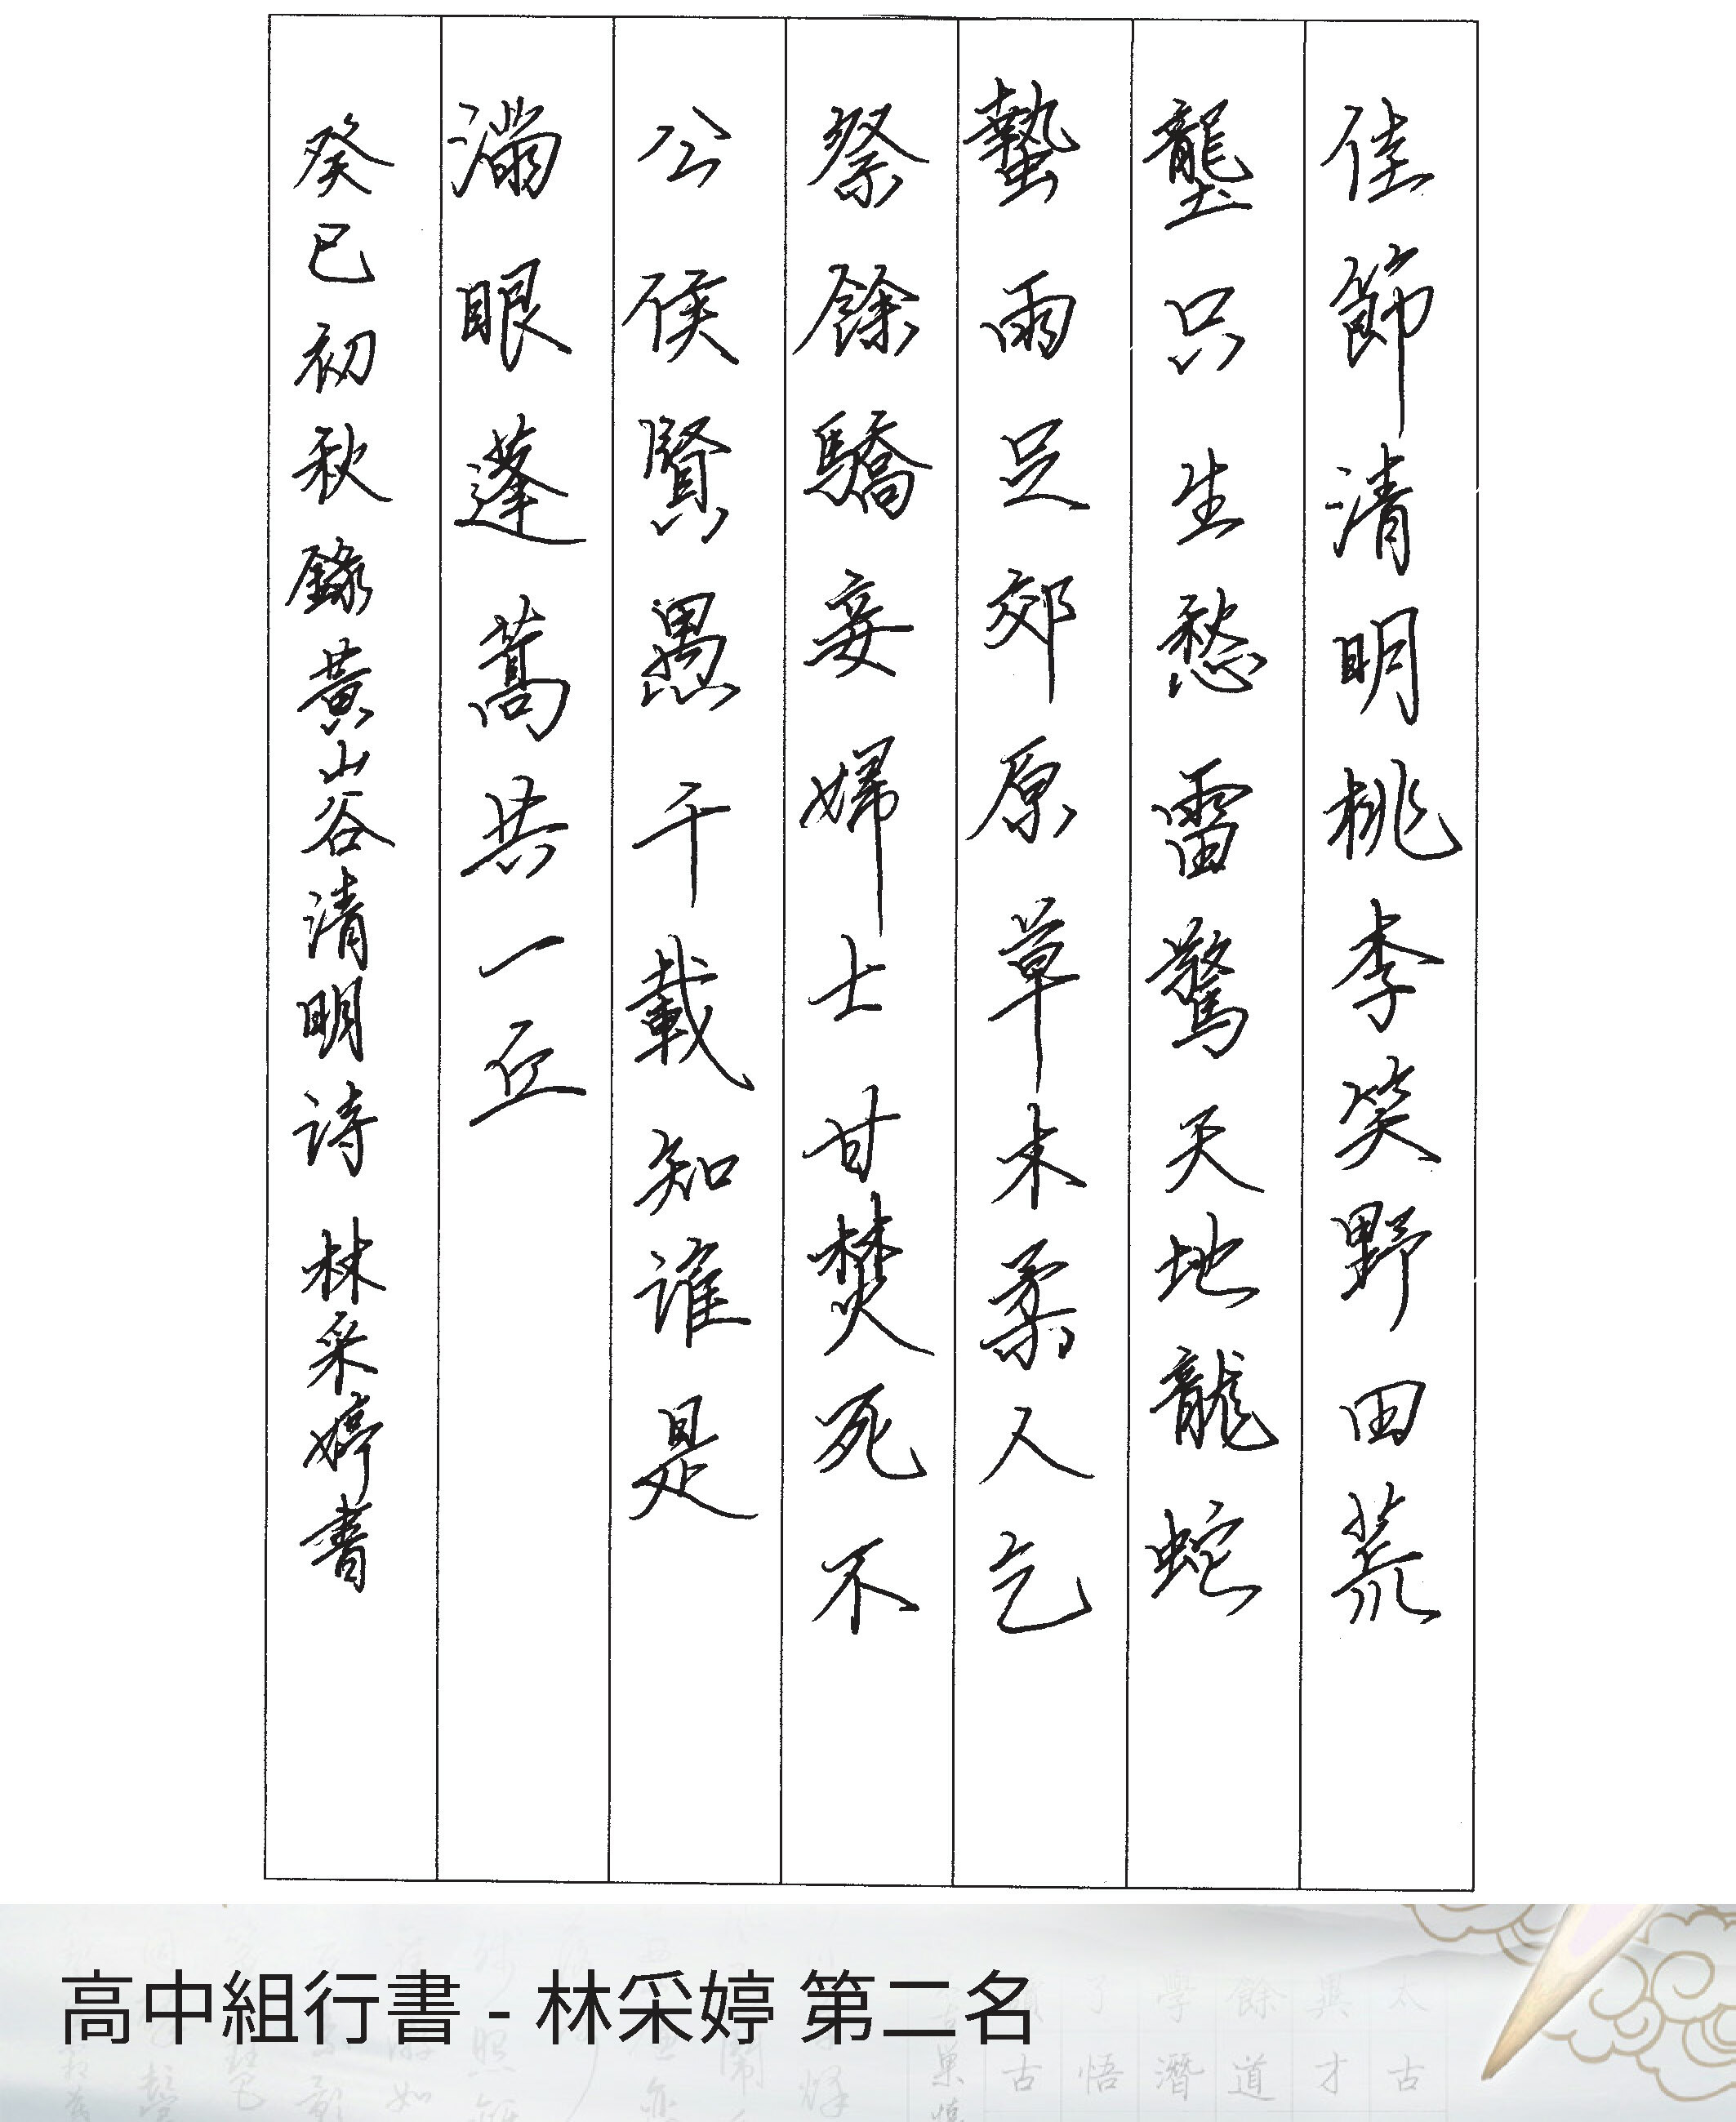 佳節清明桃李笑野田荒
壟只生愁雷驚天地龍蛇
蟄雨足郊原草木柔人乞
祭餘驕妾婦士甘焚死不
公侯賢愚千載知誰是
滿眼蓬蒿共一丘
癸巳初秋錄黃山谷清明詩 林采婷書
高中組行書 - 林采婷 第二名